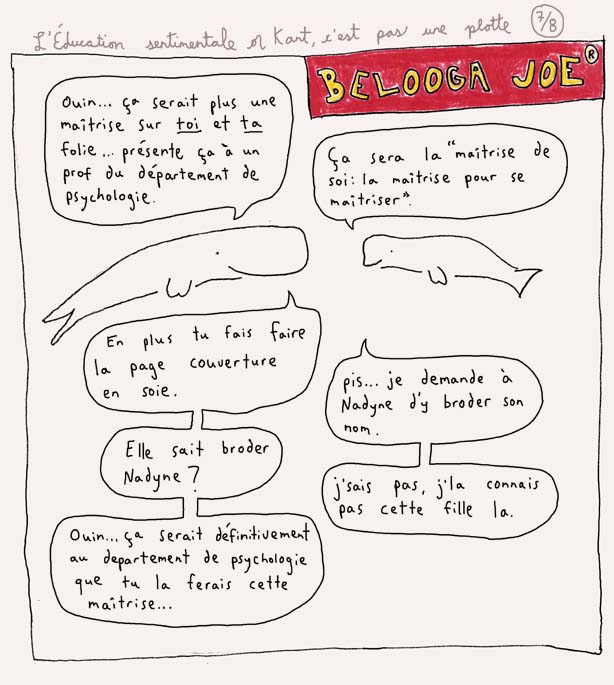 L'Éducation sentimentale or Kart, c'est pas une plotte 7/8
BELOOGA JOE ®
Ouin... ça serait plus une
maîtrise sur toi et ta
folie... présente ça à un
prof du département de
psychologie.
Ça sera la "maîtrise de
soi: la maitrise pour se
maîtriser".
En plus tu fais faire
la page couverture
en soie.
pis... je demande à
Nadyne d'y broder son
nom.
Elle sait broder
Nadyne?
j'sais pas, j'la connais
pas cette fille la.
Ouin... ça serait définitivement
au departement de psychologie
que tu la ferais cette
maîtrise...